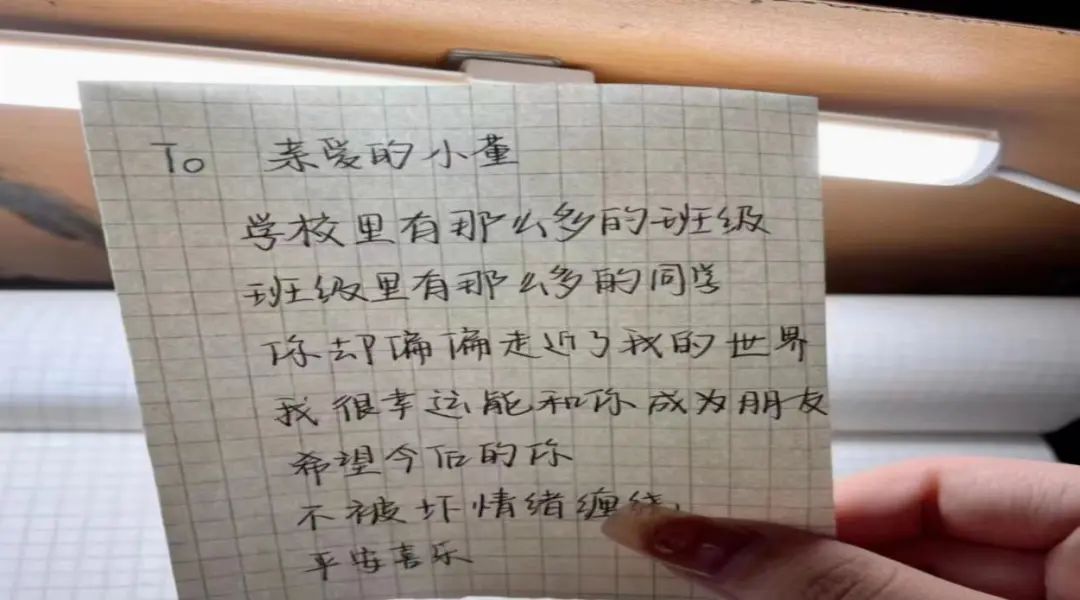 To 亲爱的小董
学校里有那么多的班级
班级里有那么多的同学
你却偏偏走近了我的世界
我很幸运能和你成为朋友
希望今后的你
不被坏情绪缠绕
平安喜乐